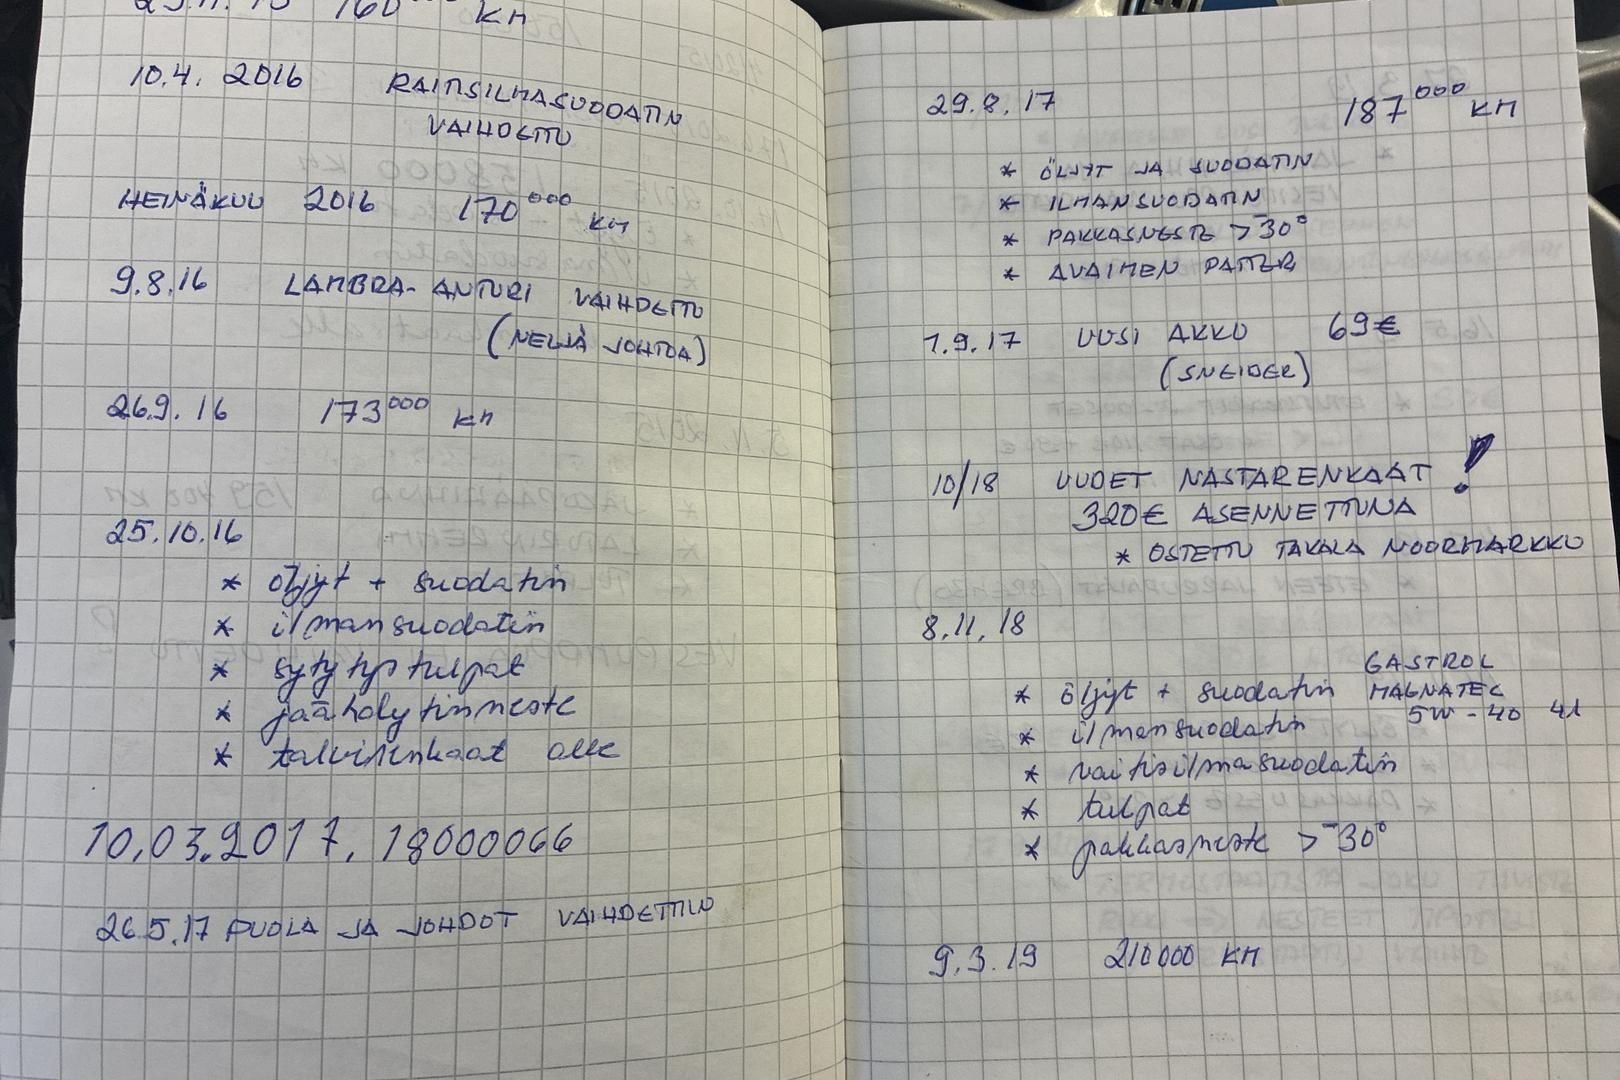 160000 KM
10.4. 2016 RAITISILMASUODATIN
VAIHDETTU
HEINÄKUU 2016 170000 KM
9.8.16 LAMBRA-ANTURI VAIHDETTU
(NELJÄ JOHTOA)
26.9. 16 173000 KM
25.10.16
* öljyt + suodatin
* ilmansuodatin
* sytytystulpat
* jäähdytinneste
* talvirenkaat alle
10.03.2017. 18000066
26.5.17 PUOLA JA JOHDOT VAIHDETTIIN
29.8.17 187000 KM
* ÖLJYT JA SUODATIN
* ILMANSUODATIN
* PAKKASNESTE > -30°
* AVAIMEN PATTERI
1.9.17 UUSI AKKU 69€
(SNEIDER)
10/18 UUDET NASTARENKAAT !
320€ ASENNETTUNA
* OSTETTU TAKALA NOORMARKKU
8.11.18
GASTROL
* öljyt + suodatin MAGNATEC
5W-40 4l
* ilmansuodatin
* raitisilmasuodatin
* tulpat
* pakkasneste > -30°
9.3.19 210000 KM